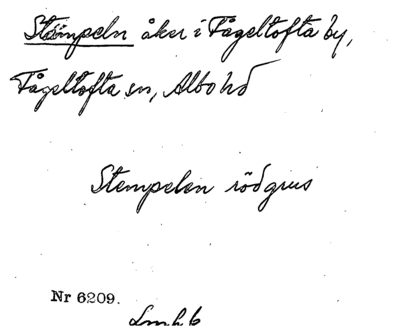 Stämpeln åker i Fågeltofta by,
Fågeltofta sn, Albo hd
Stempelen rödgrus
Nr 6209.